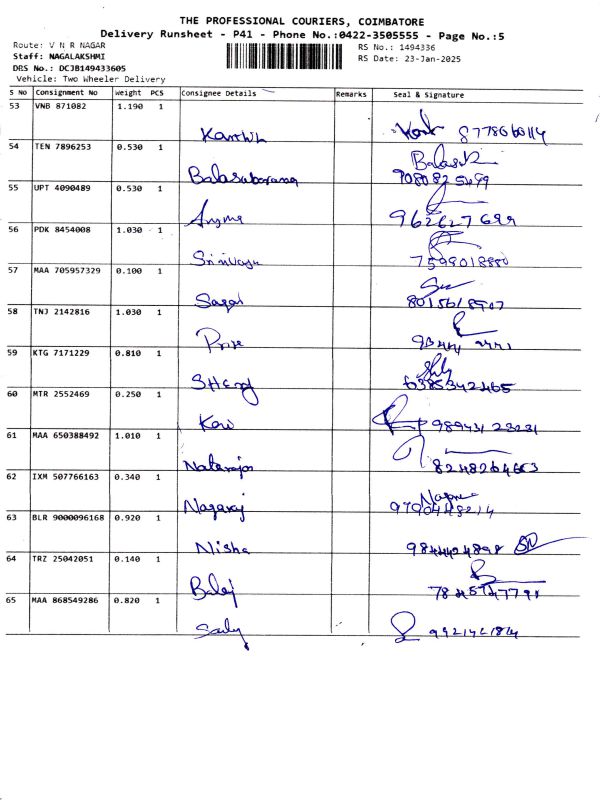 THE PROFESSIONAL COURIERS, COIMBATORE
Delivery Runsheet - P41 - Phone No.:0422-3505555 - Page No.:5
Route: V N R NAGAR
RS No.: 1494336
Staff: NAGALAKSHMI
RS Date: 23-Jan-2025
DRS No.: DCJB149433605
Vehicle: Two Wheeler Delivery
S No Consignment No Weight PCS Consignee Details Remarks Seal & Signature
53 VNB 871082 1.190 1
54 TEN 7896253 0.530 1
Balasubarama 9080825499
55 UPT 4090489 0.530 1
56 PDK 8454008 1.030 1
7599018880
57 MAA 705957329 0.100 1
Sagar
58 TNJ 2142816 1.030 1
59 KTG 7171229 0.810 1
6385342465
60 MTR 2552469 0.250 1
61 MAA 650388492 1.010 1
Natarajan
62 IXM 507766163 0.340 1
Nagaraj
63 BLR 9000096168 0.920 1
Nisha 9844424898
64 TRZ 25042051 0.140 1
Balaj
65 MAA 868549286 0.820 1